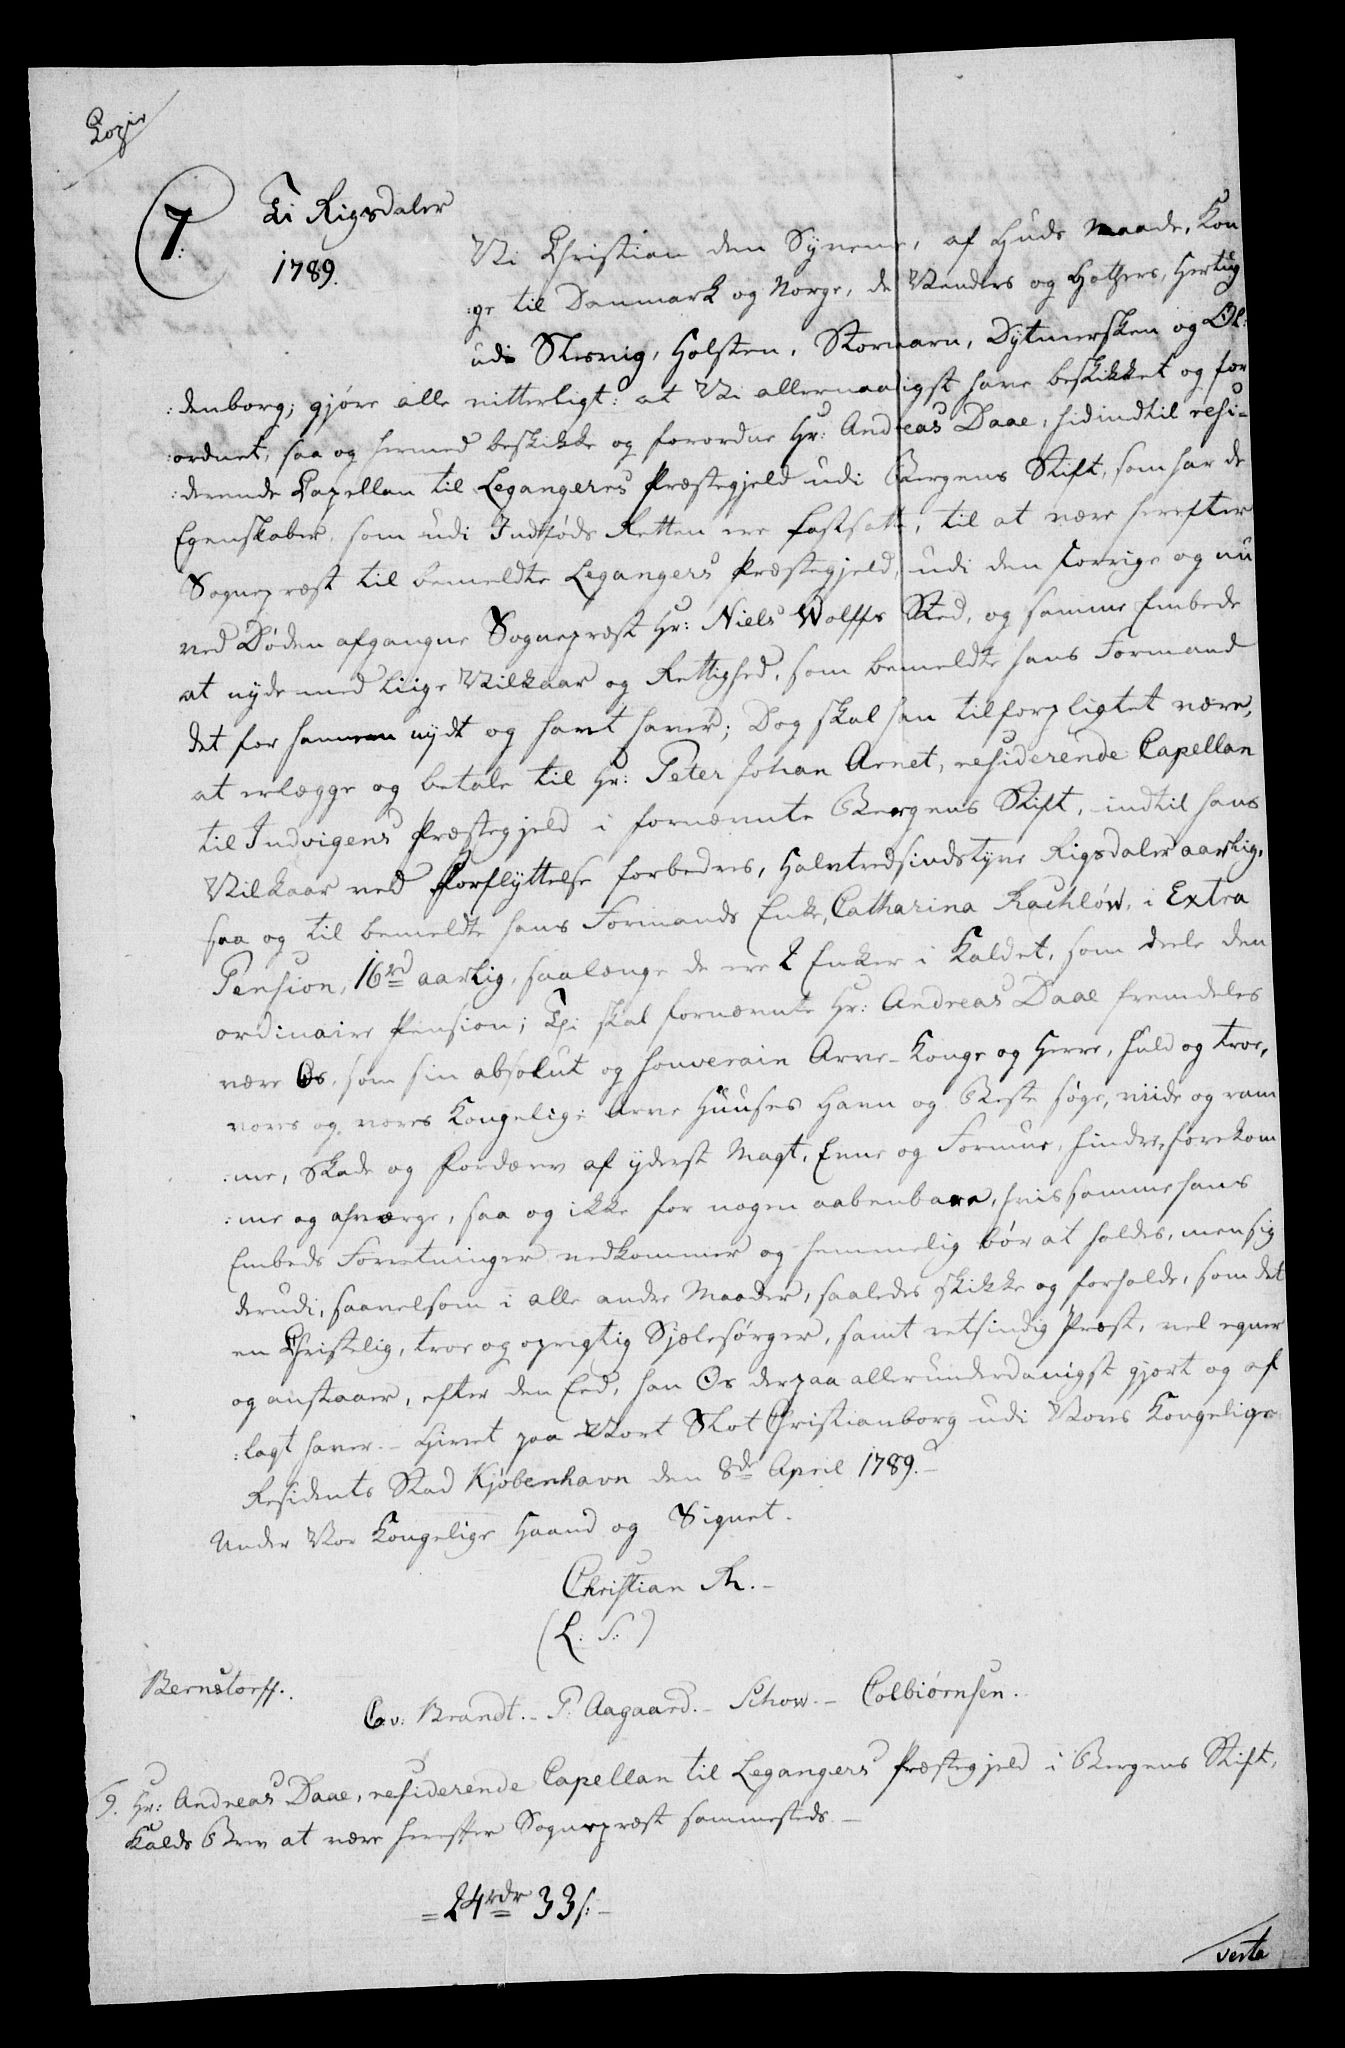 Copie
7: Ti Rigsdaler
1789.
Vi Christian den Syvende, af Guds Naade, Kon
:ge til Danmark og Norge, de Venders og Gothers, Hertug
udi Slesvig, Holsten, Stormarn, Dytmersken og Ol:
:denborg; gjøre alle vitterligt: at Vi allernaadigst have beskikket og for
:ordnet, saa og hermed beskikke og forordne Hr: Andreas Daae, hidindtil resi-
:derende Capellan til Legangeres Præstegjeld udi Bergens Stift, som har de
Egenskaber, som udi Indføds Retten ere fastsatte, til at være herefter
Sognepræst til bemeldte Legangers Præstegjeld, udi den forrige og nu
ved Døden afgangne Sognepræst Hr: Niels Wolffs Sted, og samme Embede
at nyde med liige Vilkaar og Rettighed, som bemeldte hans Formand
det for hannem nydt og havt haver; Dog skal han tilforpligtet være,
at erlægge og betale til Hr: Peter Johan Arnet, residerende Capellan
til Indvigens Præstegjeld i fornævnte Bergens Stift, indtil hans
Vilkaar ved Forflyttelse forbedres, Halvtredsindstyve Rigsdaler aarlig,
saa og til bemeldte hans Formands Enke, Catharina Rachløw, i Extra
Pension, 16rd aarlig, saalænge de ere 2 Enker i Kaldet, som deele den
ordinaire Pension; Thi skal fornævnte Hr: Andreas Daae fremdeles
være Os, som sin absolut og souverain Arve-Konge og Herre, huld og troe,
vores og vores Kongelige Arve Huuses Gavn og Beste søge, viide og ram
:me, Skade og Fordærv af yderst Magt, Evne og Formue, hindre, forekom
:me og afværge, saa og ikke for nogen aabenbare, hvis samme hans
Embeds Forretninger vedkommer og hemmelig bør at holdes, men sig
derudi, saavelsom i alle andre Maader, saaledes skikke og forholde, som det
en Christelig, troe og oprigtig Sjælesørger, samt retsindig Præst, vel egner
og anstaaer, efter den Eed, han Os derpaa allerunderdanigst gjort og af
:lagt haver. – Givet paa Vort Slot Christianborg udi Vores Kongelige
Residents Stad Kjøbenhavn den 8de April 1789. –
Under Vor Kongelige Haand og Signet.
Christian R. –
(L. S.)
Bernstorff.
C: v: Brandt. – P: Aagaard. – Schow. – Colbiørnsen.
9. Hr: Andreas Daae, residerende Capellan til Legangers Præstegjeld i Bergens Stift,
Kalds Brev at være herefter Sognepræst sammesteds. –
= 24rdr 33 s: –
verte